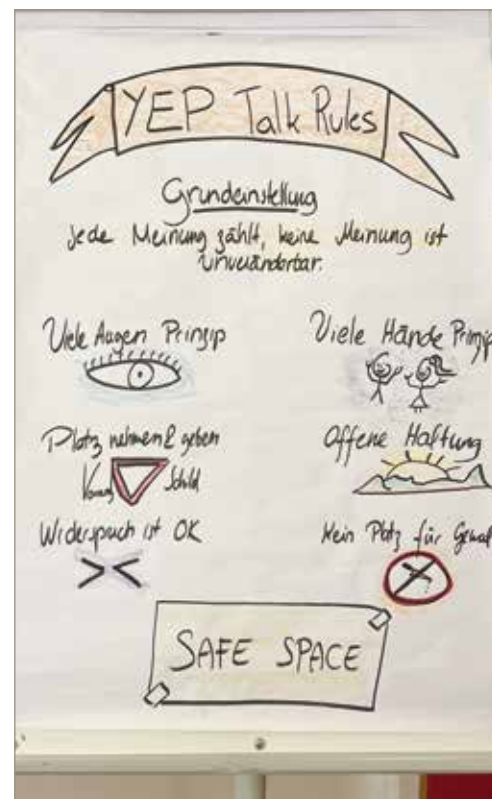 YEP Talk Rules
Grundeinstellung
Jede Meinung zählt, keine Meinung ist
unveränderbar.
Viele Augen Prinzip
Viele Hände Prinzip
Platz nehmen & geben
Schild
Offene Haltung
Widerspruch ist OK
Kein Platz für Gewal
SAFE SPACE